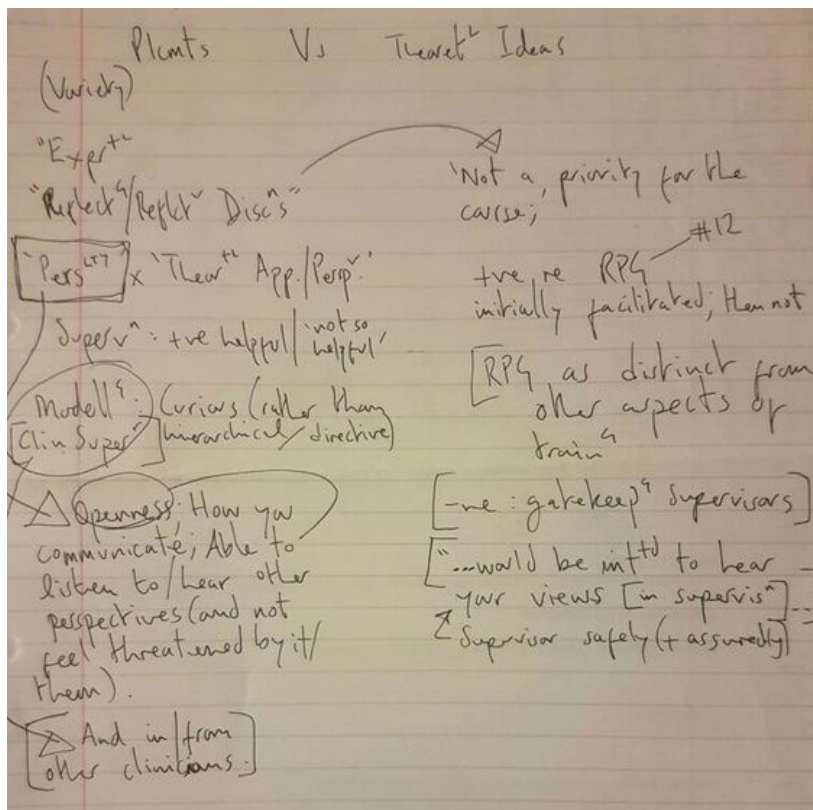 Plcmts Vs Theoret^L Ideas
(Variety)
"Exper^tL
"Reflect^g/Reflct^v Disc^ns"
"Pers^LTY" x 'Theor^tL App./Persp^v.'
Superv^n: +ve helpful/'not so
helpful'
Modell^g: Curious (rather than
[Clin Super^n] hierarchical/directive)
Openness; How you
communicate; Able to
listen to/hear other
perspectives (and not
feel threatened by it/
them).
[And in/from
other clinicians.]
'Not a priority for the
course;
#12
+ve re RPG
initially facilitated; then not
[RPG as distinct from
other aspects of
train^g
[-ve: gatekeep^g supervisors]
["...would be int^td to hear
your views [in supervis^n]...
Supervisor safely (+ assuredly)